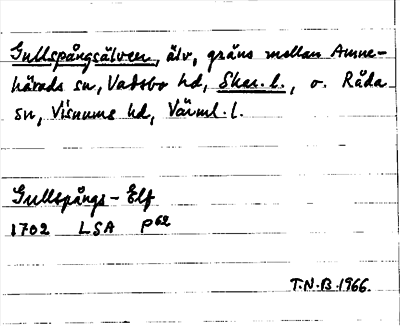 Gullspångsälven, älv, gräns mellan Amne-
härads sn, Vadsbo hd, Skar. l., o. Råda
sn, Visnums hd, Värml. l.
Gullspångs-Elf
1702 LSA P62
T.N.B. 1966.